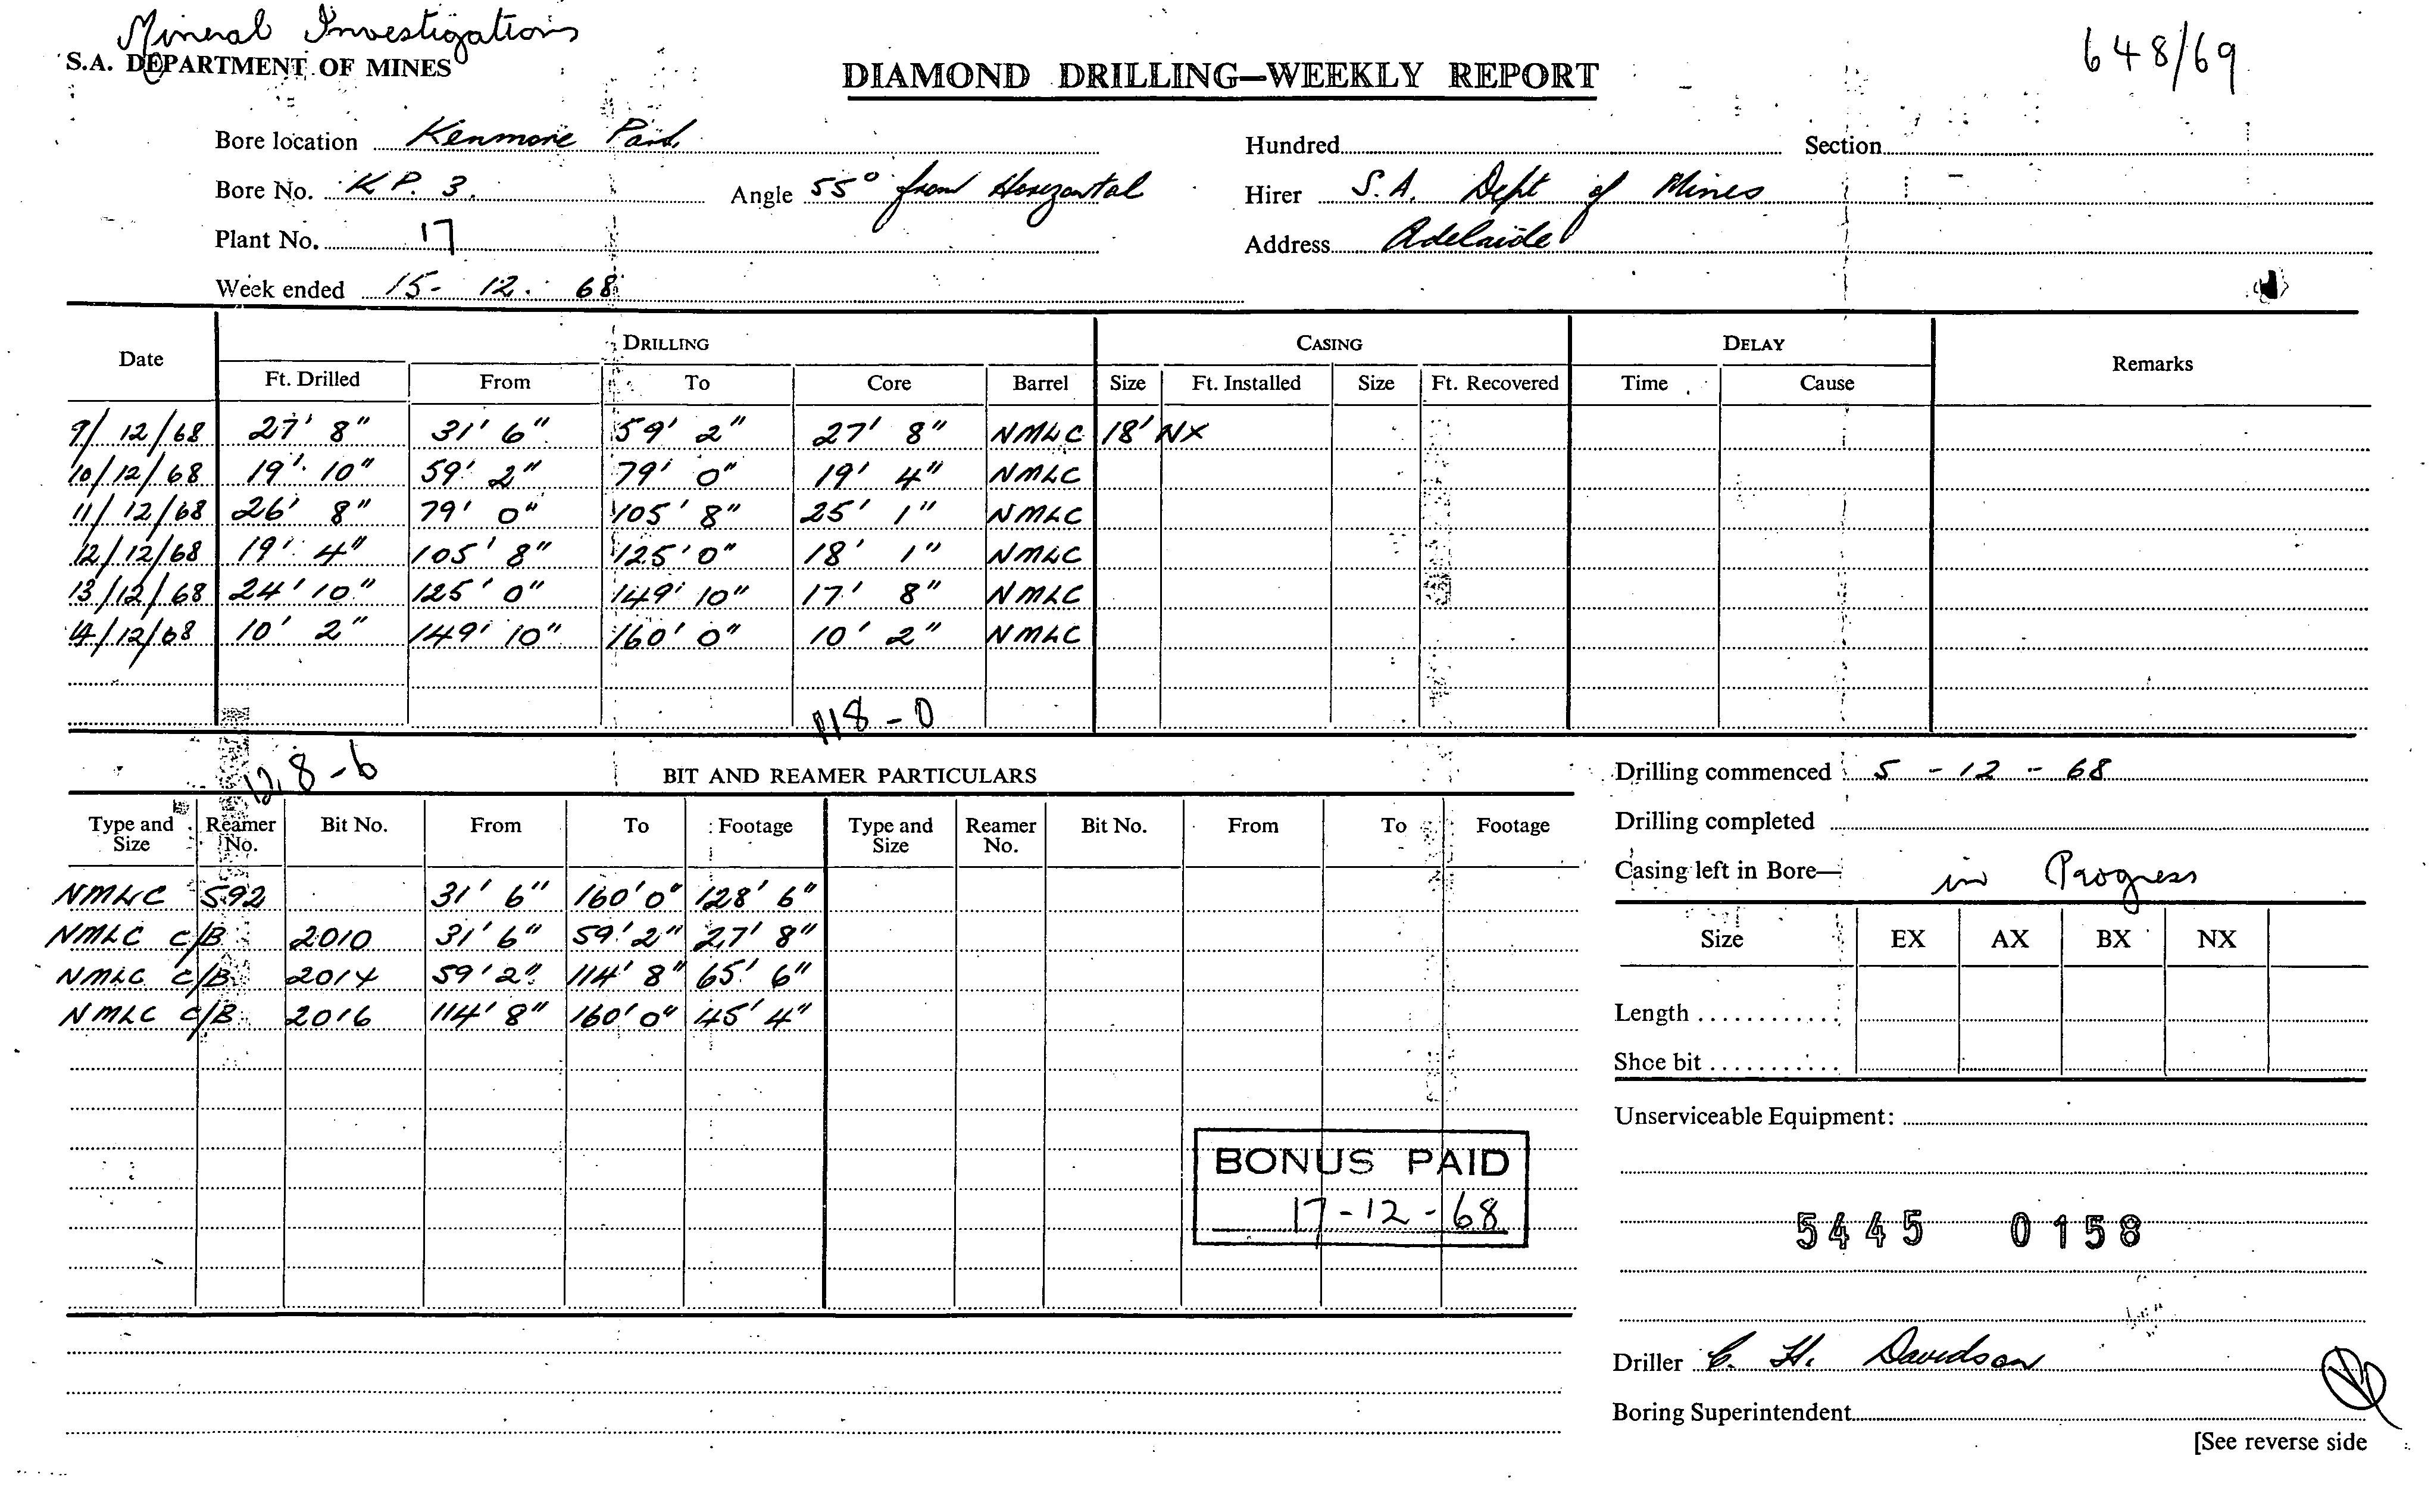 Mineral Investigations
S.A. DEPARTMENT OF MINES
DIAMOND DRILLING—WEEKLY REPORT
648/69
Bore location Kenmore Park
Hundred Section
Bore No. K P. 3. Angle 55° from Horizontal
Hirer S.A. Dept of Mines
Plant No. 17
Address Adelaide
Week ended 15- 12. 68
Date DRILLING CASING DELAY Remarks
Ft. Drilled From To Core Barrel Size Ft. Installed Size Ft. Recovered Time Cause
9/12/68 27' 8" 31' 6" 59' 2" 27' 8" NMLC 18' NX
10/12/68 19' 10" 59' 2" 79' 0" 19' 4" NMLC
11/12/68 26' 8" 79' 0" 105' 8" 25' 1" NMLC
12/12/68 19' 4" 105' 8" 125' 0" 18' 1" NMLC
13/12/68 24' 10" 125' 0" 149' 10" 17' 8" NMLC
14/12/68 10' 2" 149' 10" 160' 0" 10' 2" NMLC
118-0
128-6
BIT AND REAMER PARTICULARS
Type and Size Reamer No. Bit No. From To Footage Type and Size Reamer No. Bit No. From To Footage
NMLC 592 31' 6" 160' 0" 128' 6"
NMLC C/B 2010 31' 6" 59' 2" 27' 8"
NMLC C/B 2014 59' 2" 114' 8" 65' 6"
NMLC C/B 2016 114' 8" 160' 0" 45' 4"
BONUS PAID
17-12-68
Drilling commenced 5 - 12 - 68
Drilling completed
Casing left in Bore— in Progress
Size EX AX BX NX
Length
Shoe bit
Unserviceable Equipment:
5445 0158
Driller C. H. Davidson
Boring Superintendent
[See reverse side